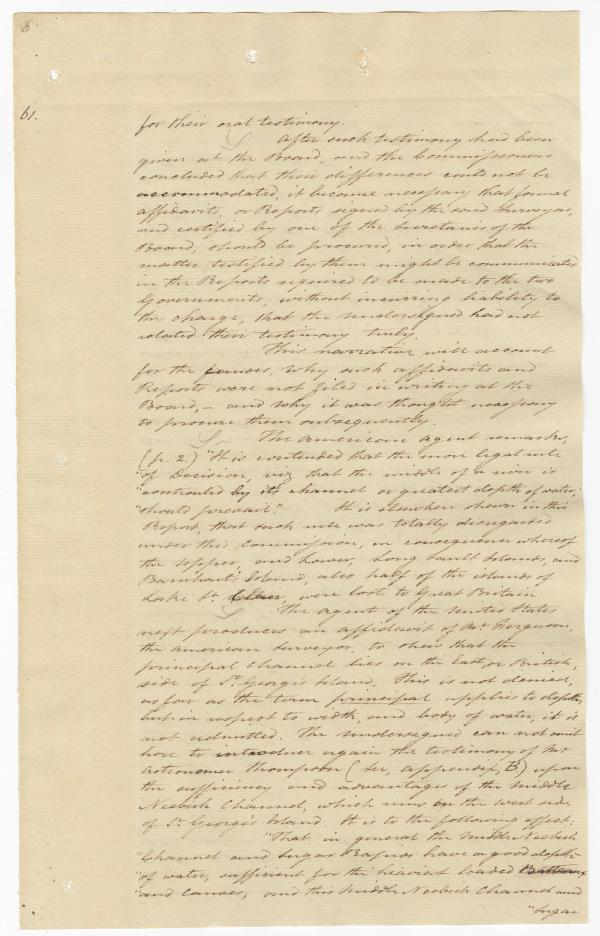 6
61.
for their oral testimony.
After such testimony had been
given at the Board, and the Commissioners
concluded that their differences could not be
accommodated, it became necessary that formal
affidavits, or Reports signed by the said Surveyors,
and certified by one of the Secretaries of the
Board, should be procured, in order that the
matter testified by them might be communicated
in the Reports required to be made to the two
Governments, without incurring liability to
the charge, that the undersigned had not
related their testimony truly.
This narrative will account
for the causes, why such affidavits and
Reports were not filed in writing at the
Board, – and why it was thought necessary
to procure them subsequently.
The American agent remarks,
(p. 2.) "It is contended that the more legal rule
"of Decision, viz that the middle of a river is
"controuled by its channel or greatest depth of water,
"should prevail." It is elsewhere shewn in this
Report, that such rule was totally disregarded
under this Commission, in consequence whereof
the Upper, and Lower, Long Sault Islands, and
Barnhart's Island, also half of the islands of
Lake St. Clair, were lost to Great Britain.
The agent of the United States
next produces an affidavit of Mr. Ferguson,
the American Surveyor, to shew that the
principal channel lies on the East, or British,
side of St. George's Island. This is not denied,
as far as the term principal applies to depth,
but in respect to width, and body of water, it is
not admitted. The undersigned can not omit
here to introduce again the testimony of Mr.
Astronomer Thompson (see, appendix, B.) upon
the sufficiency and advantages of the Middle
Neebish Channel, which runs on the west side
of St. George's Island. It is to the following effect:
"That in general the Middle Neebish
"Channel and Sugar Rapids have a good depth
"of water, sufficient for the heaviest loaded Batteaux
"and Canoes; and this Middle Neebish Channel and
"Sugar